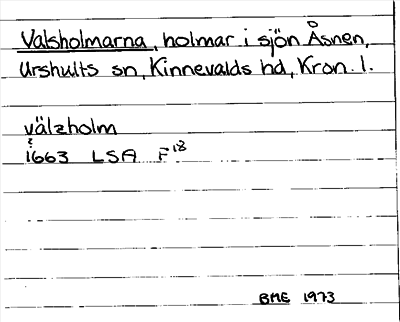 Valsholmarna, holmar i sjön Åsnen,
Urshults sn, Kinnevalds hd, Kron. l.
välzholm
1663 LSA F 18
BME 1973